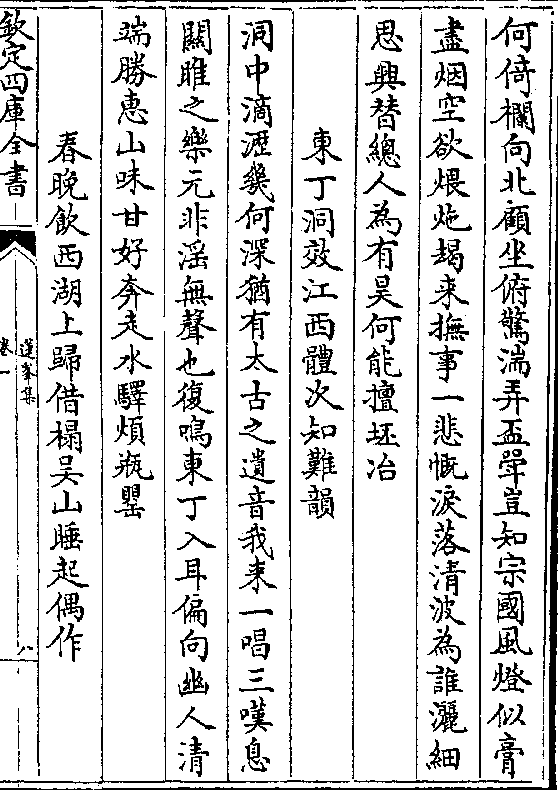 何倚欄向北顧坐俯驚湍弄盃斝豈知宗國風燈似膏
盡烟空欲煨灺朅来撫事一悲慨淚落清波為誰灑細
思興替總人為有昊何能擅坯冶
東丁洞效江西體次知難韻
洞中滴瀝幾何深猶有太古之遺音我来一唱三嘆息
關雎之樂元非滛無聲也復鳴東丁入耳偏向幽人清
端勝惠山味甘好奔走水驛煩瓶罌
春晚飲西湖上歸借榻吳山睡起偶作
欽定四庫全書
蓮峯集
卷一
八